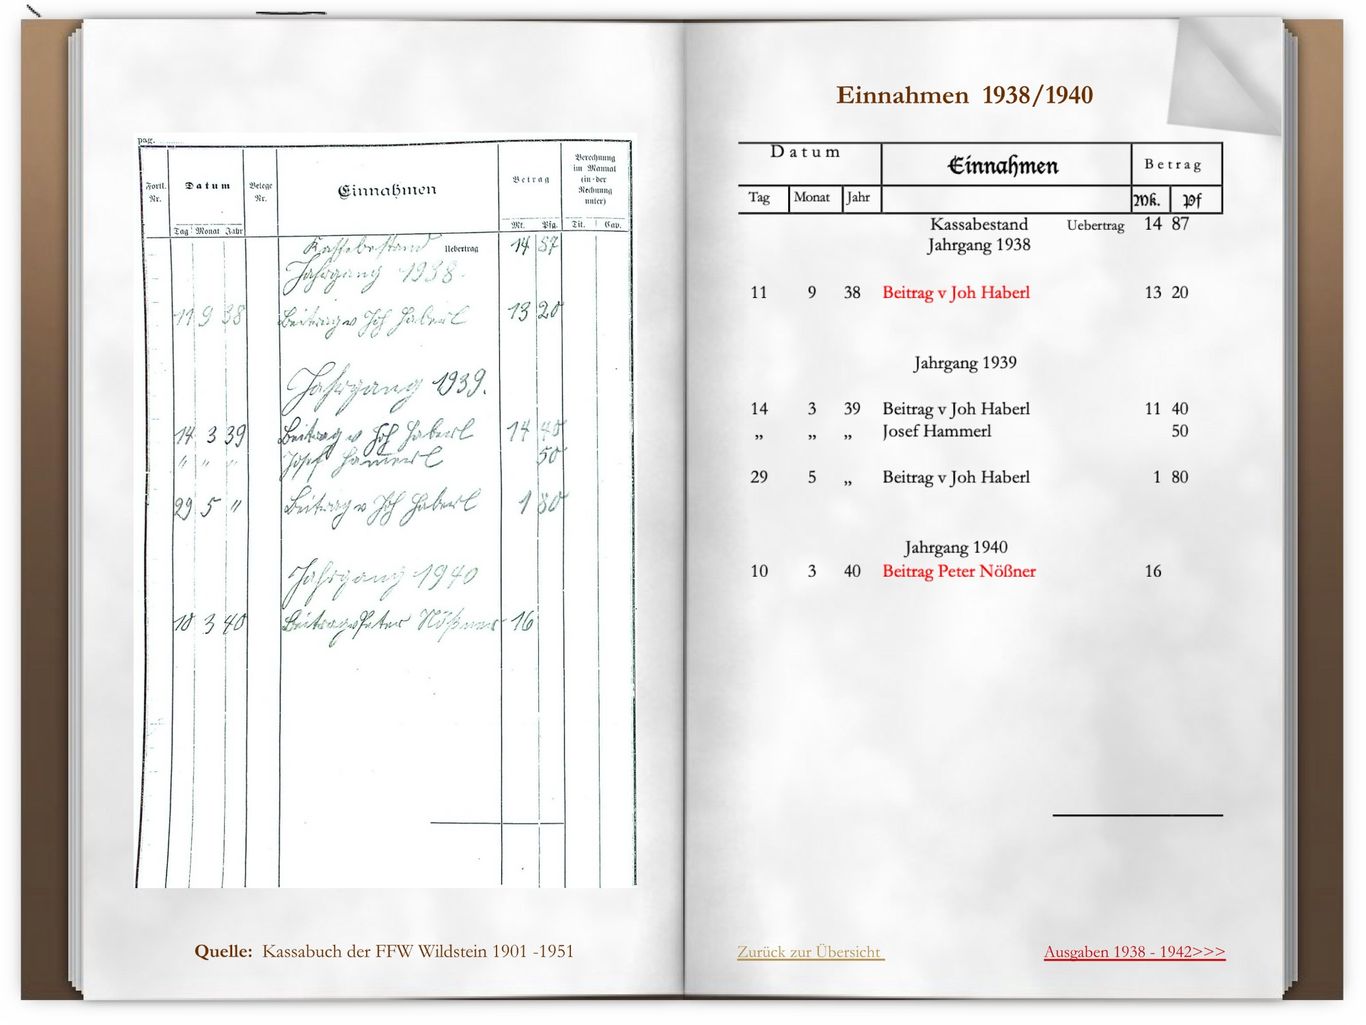 pag.
Fortl. Nr. Datum Belege Nr. Einnahmen Betrag Berechnung im Manual (in der Rechnung unter)
Tag Monat Jahr Mk. Pfg. Tit. Cap.
Kassebestand Uebertrag 14 87
Jahrgang 1938.
11 9 38 Beitrag v Joh Haberl 13 20
Jahrgang 1939.
14 3 39 Beitrag v Joh Haberl 11 40
" " " Josef Hammerl 50
29 5 " Beitrag v Joh Haberl 1 80
Jahrgang 1940
10 3 40 Beitrag v Peter Nößner 16
Quelle: Kassabuch der FFW Wildstein 1901 -1951
Einnahmen 1938/1940
Datum Einnahmen Betrag
Tag Monat Jahr Mk. Pf
Kassabestand Uebertrag 14 87
Jahrgang 1938
11 9 38 Beitrag v Joh Haberl 13 20
Jahrgang 1939
14 3 39 Beitrag v Joh Haberl 11 40
„ „ „ Josef Hammerl 50
29 5 „ Beitrag v Joh Haberl 1 80
Jahrgang 1940
10 3 40 Beitrag Peter Nößner 16
Zurück zur Übersicht
Ausgaben 1938 - 1942>>>